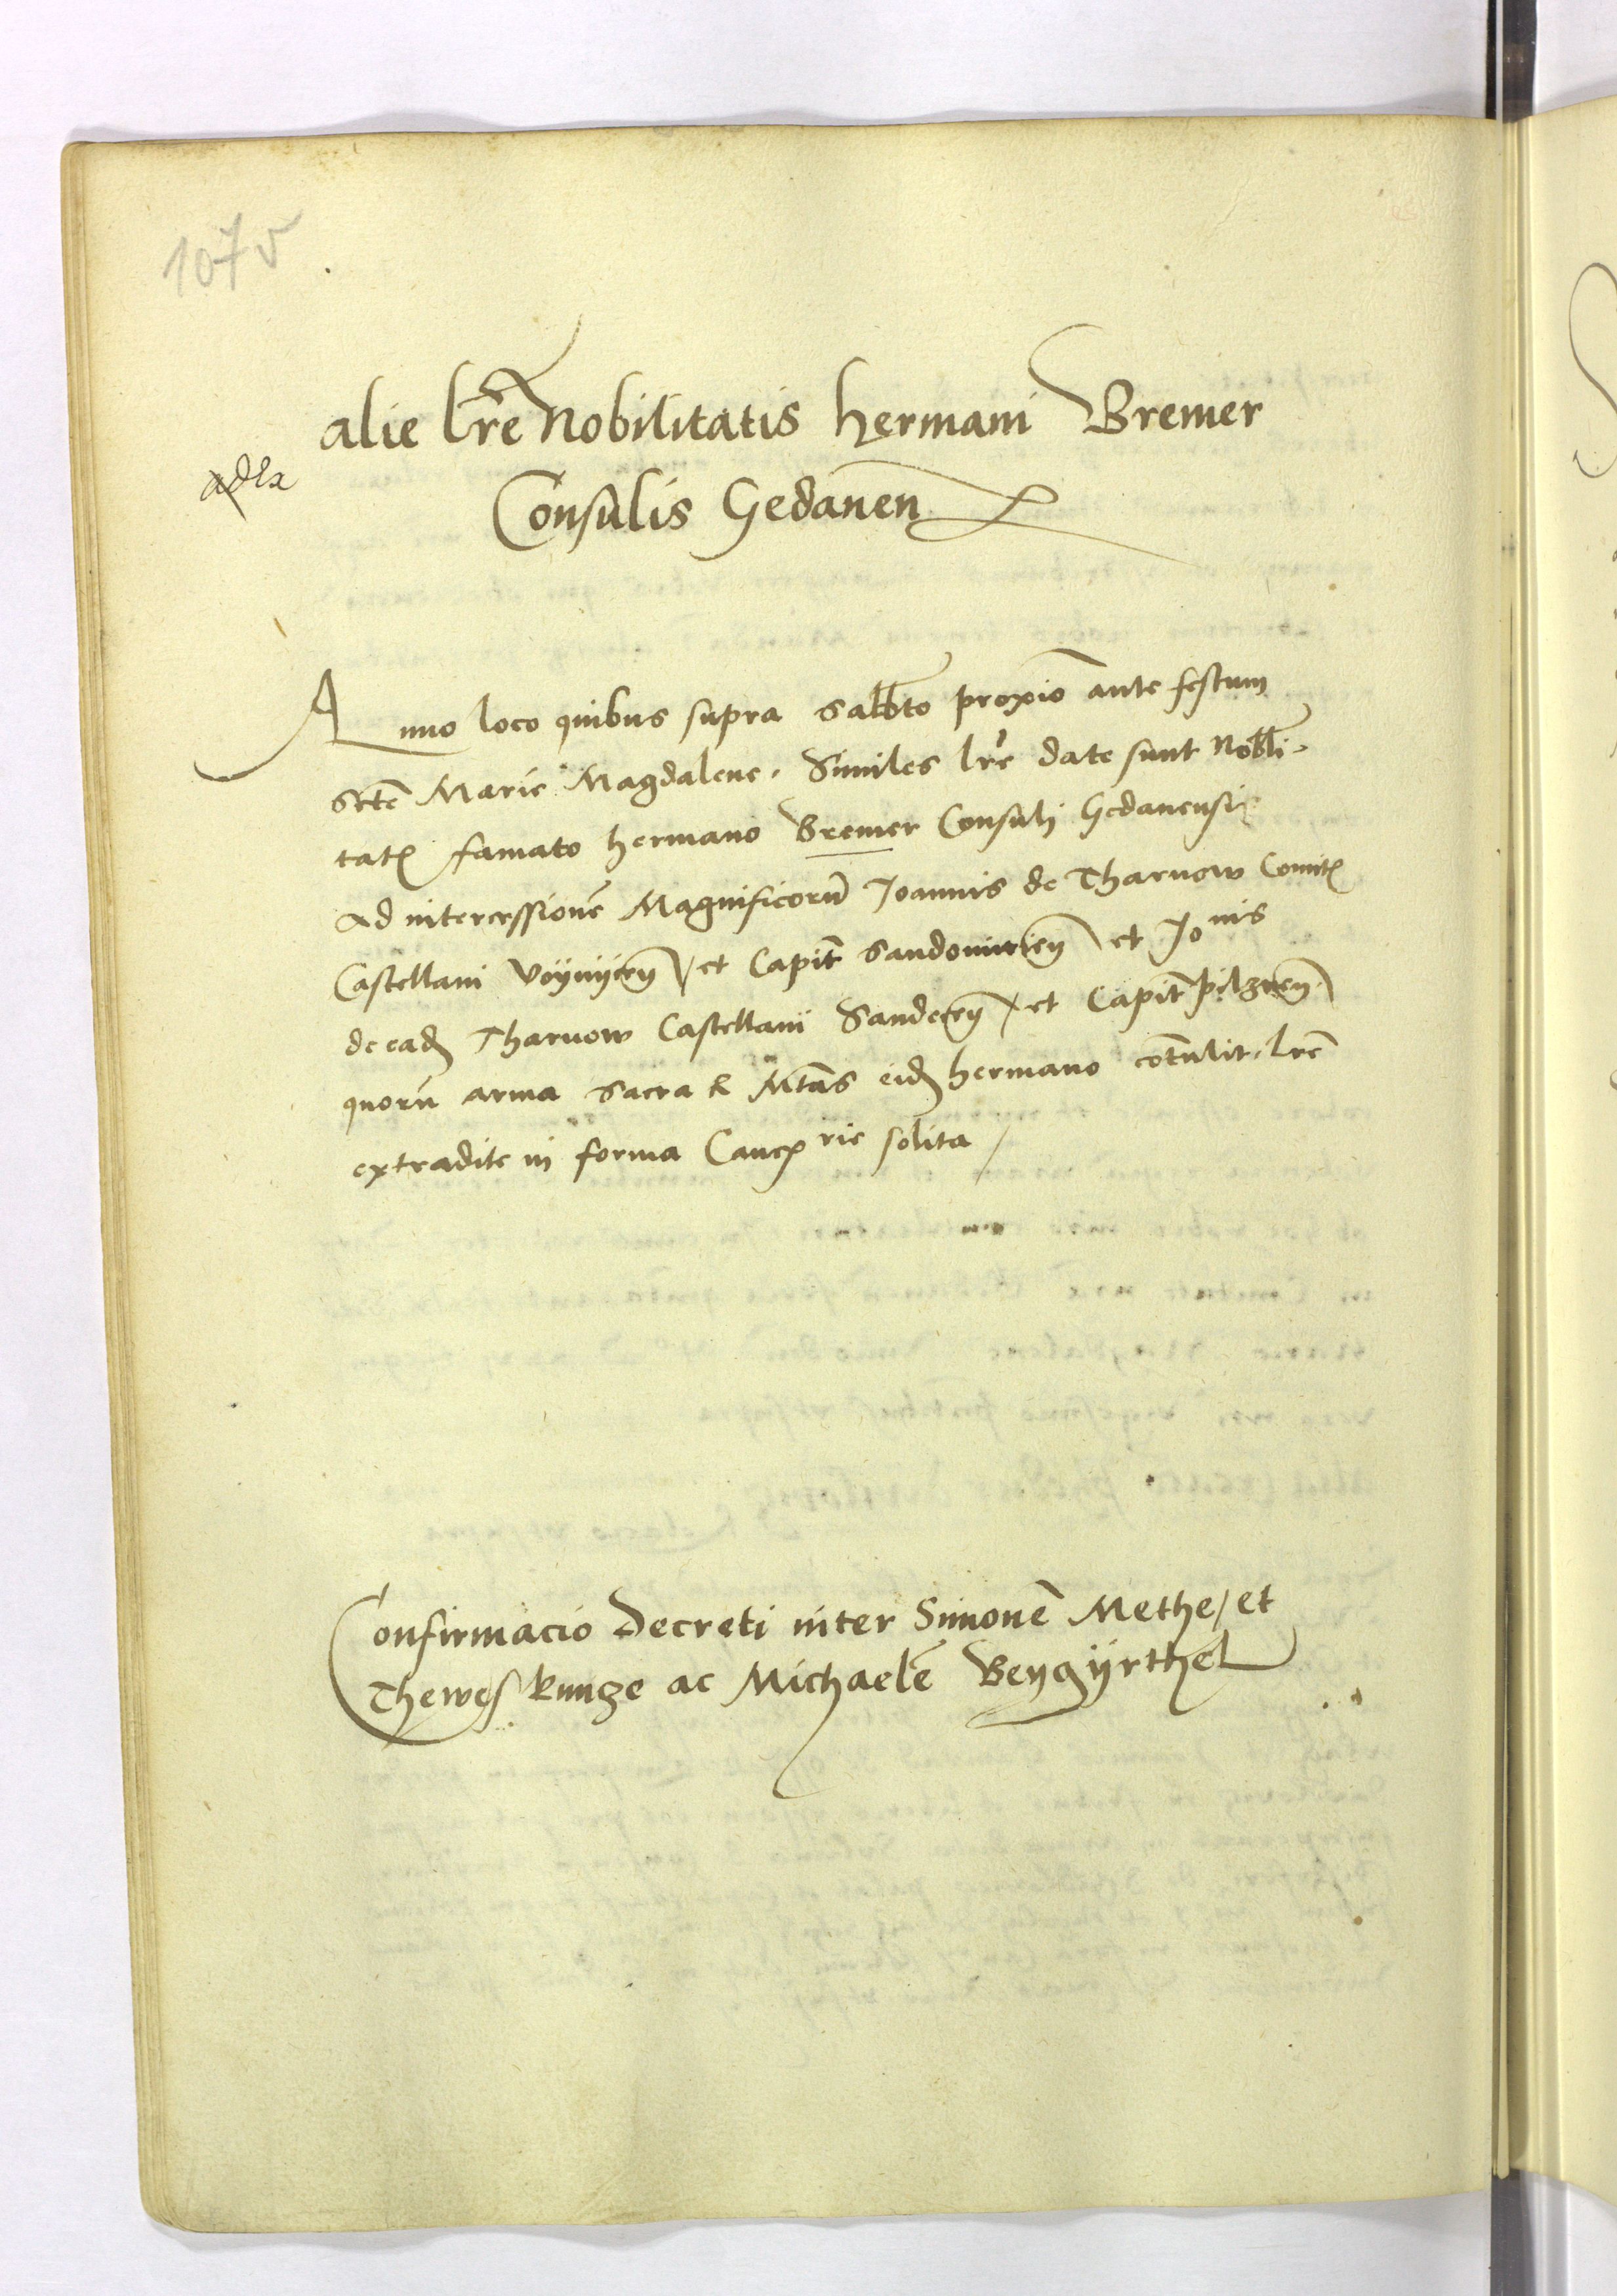 107v
alie lr̄e Nobilitatis hermani Bremer
Consulis Gedanen
Anno loco quibus supra Sabb̄to proxīo ante festum
Sctē Marie Magdalene. Similes lr̄e date sunt Nobb̄li-
tatꝭ famato hermano Bremer Consuli Gedanensi
Ad intercessionē Magnificorū Joannis de Tharnow Comitꝭ
Castellani Voÿnÿcen̄ / et Capit̄ Sandomirien̄ et Jonis
de eadꝫ Tharnow Castellani Sandecen̄ / et Capit̄ pilznen̄
quorū arma Sacra R Mtās eidꝫ hermano cōtulit. Lrē
extradite in forma Cancꝑrie solita /
Confirmacio Decreti inter Simonē Methe / et
Thewes kunze ac Michaelē Beygÿrthel